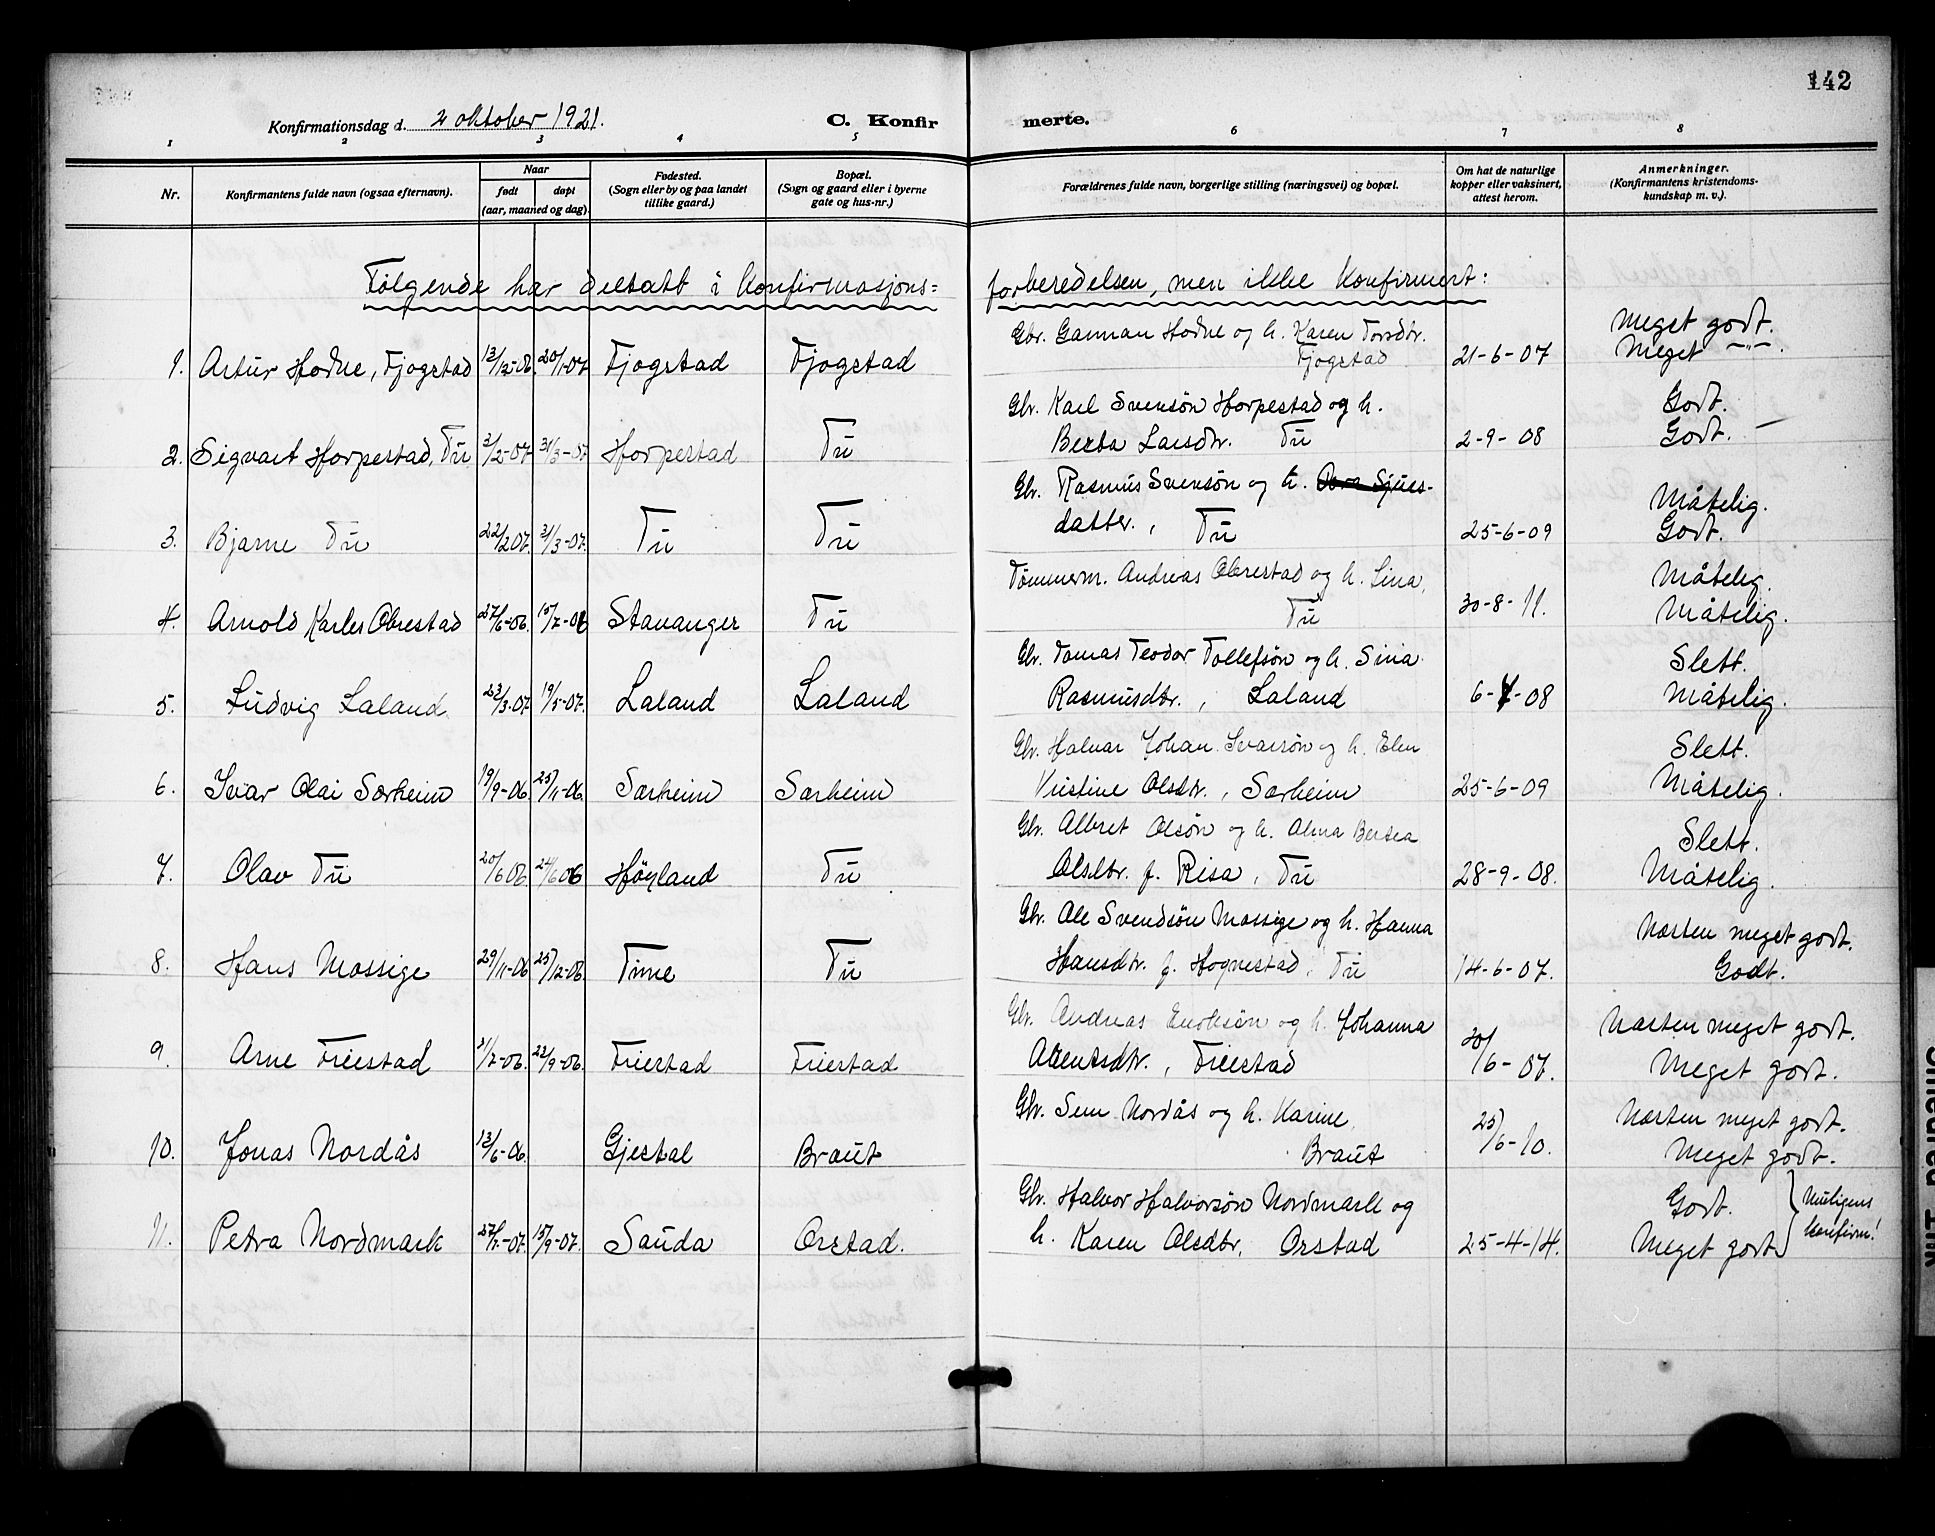 142
Konfirmationsdag d. 2 oktober 1921. C. Konfir merte.
1 2 3 4 5 6 7 8
Nr. Konfirmantens fulde navn (ogsaa efternavn). Naar født døpt (aar, maaned og dag). Fødested. (Sogn eller by og paa landet tillike gaard.) Bopæl. (Sogn og gaard eller i byerne gate og hus-nr.) Forældrenes fulde navn, borgerlige stilling (næringsvei) og bopæl. Om hat de naturlige kopper eller vaksinert, attest herom. Anmerkninger. (Konfirmantens kristendoms-kundskap m. v.).
Følgende har deltatt i konfirmasjons= forberedelsen, men ikke konfirmert:
Gbr. Gamman Hodne og h. Karen Torsdtr. Meget godt.
1. Artur Hodne, Fjogstad 13/12-06. 20/1-07 Fjogstad Fjogstad Fjogstad 21-6-07 Meget —"—.
Gbr. Karl Svensøn Horpestad og h. Godt.
2. Sigvart Horpestad, Tu 3/2-07 31/3-07 Horpestad Tu Berta Larsdtr. Tu 2-9-08 Godt. —
Gbr. Rasmus Svensøn og h. Sjurs- Måtelig.
3. Bjarne Tu 22/2 07. 31/3-07. Tu Tu datter., Tu 25-6-09 Godt.
Tømmerm. Andreas Obrestad og h. Lina, Måtelig.
4. Arnold Karles Obrestad 27/6-06. 15/7-06 Stavanger Tu Tu 30-8-11. Måtelig.
Gbr. Tomas Teodor Tollefsøn og h. Sina Slett.
5. Ludvig Laland 23/3-07. 19/5-07. Laland Laland Rasmusdtr., Laland 6-7-08 Måtelig.
Gbr. Halvar Johan Ivarsøn og h. Elen Slett.
6. Ivar Olai Særheim 19/9-06. 25/11-06. Særheim Særheim Kristine Olsdtr., Særheim 25-6-09 Måtelig.
Gbr. Albret Olsøn og h. Alma Bertea Slett.
7. Olav Tu 20/6 06. 24/6 06 Høyland Tu Olsdtr. f. Risa, Tu 28-9-08. Måtelig.
Gbr. Ole Svendsøn Mossige og h. Hanna Næsten meget godt.
8. Hans Mossige 29/11-06 25/12-06. Time Tu Hansdtr. f. Hognestad, Tu 14-6-07. Godt.
Gbr. Andreas Enoksøn og h. Johanna Næsten meget godt.
9. Arne Friestad 21/7-06. 23/9-06. Friestad Friestad Atlentsdtr., Friestad 30/6-07. Meget godt.
Gbr. Sem Nordås og h. Karine Næsten meget godt.
10. Jonas Nordås 13/6-06. Gjestal Braut Braut 25/6-10. Meget godt.
Gbr. Halvor Halvorsøn Nordmark og Godt. Muligens
11. Petra Nordmark 27/7-07. 15/9-07. Sauda Orstad. h. Karen Olsdtr. Orstad 25-4-14. Meget godt konfirm!